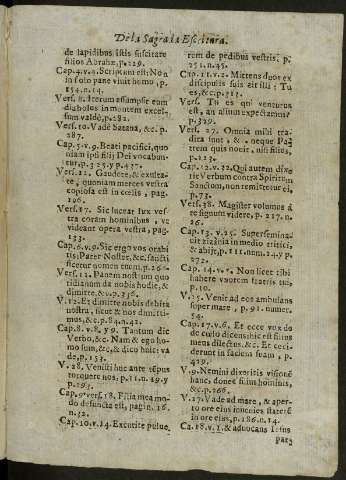 De la Sagrada Escritura.
de lapidibus istis suscitare
filios Abrahæ, p.219.
Cap.4.v.4. Scriptum est: Non
in solo pane vivit homo, p.
154.n.14.
Vers. 8. Iterum assumpsit eum
diabolus in montem excel-
sum valdè, p.282.
Vers.10. Vade Satana, &c. p.
287.
Cap.5.v.9. Beati pacifici, quo
niam ipsi filij Dei vocabun-
tur, p.325.y p.437.
Vers.12. Gaudete, & exulta-
te, quoniam merces vestra
copiosa est in cœlis, pag.
196.
Vers.17. Sic luceat lux ves-
tra coram hominibus, vt
videant opera vestra, pag.
133.
Cap.6.v.9. Sic ergo vos orabi
tis; Pater Noster, &c. sancti
ficetur nomen tuum, p.261.
Vers.11. Panem nostrum quo
tidianum da nobis hodie, &
dimitte, & v.p.336.
V.12. Et dimitte nobis debita
nostra, sicut & nos dimitti-
mus, &c.p.84.n.42.
Cap.8. v.8. y 9. Tantum dic
Verbo, &c. Nam & ego ho-
mo sum, &c, & dico huic: va
de, p.153.
V.28. Venisti huc ante tempus
torquere nos; p.11.n.49.y
p.293.
Cap.9. vers.18. Filia mea mo-
do defuncta est, pagin.16.
n.32.
Cap.10.v.14. Excutite pulue,
rem de pedibus vestris, p.
251.n.45.
Cap.11.v.2. Mittens duos ex
discipulis suis ait illi: Tu
es, &c.p.313.
Vers. Tu es qui venturus
est, an alium expectamus?
p.329.
Vers. 27. Omnia mihi tra-
dita sunt, & neque Pa
trem quis novit, nisi filius,
p.123.
Cap.12.v.32. Qui autem dixe
rit Verbum contra Spiritum
Sanctum, non remittetur ei,
p.73.
Vers.38. Magister volumus á
te signum videre, p.217.n.
26.
Cap.13. v.25. Superseminavit
zizania in medio tritici,
& abijt, p.111.num.24.y p.
272.
Cap. 14.v.4. Non licet tibi
habere vxorem fratris tui,
p.10.
V.25. Venit ad eos ambulans
super mare, p.91. numer.
54.
Cap.17.v.6. Et ecce vox de
de cœlo dicens: hic est filius
meus dilectus, &c. Et ceci-
derunt in faciem suam, p.
429.
V.9. Nemini dixeritis visionem
hanc, donec filius hominis,
&c.p.266.
V.27. Vade ad mare, & aper-
to ore eius invenies statere
in ore eius, p.186.n.14.
Ca.18.v.1. & advocans Iesus
par-